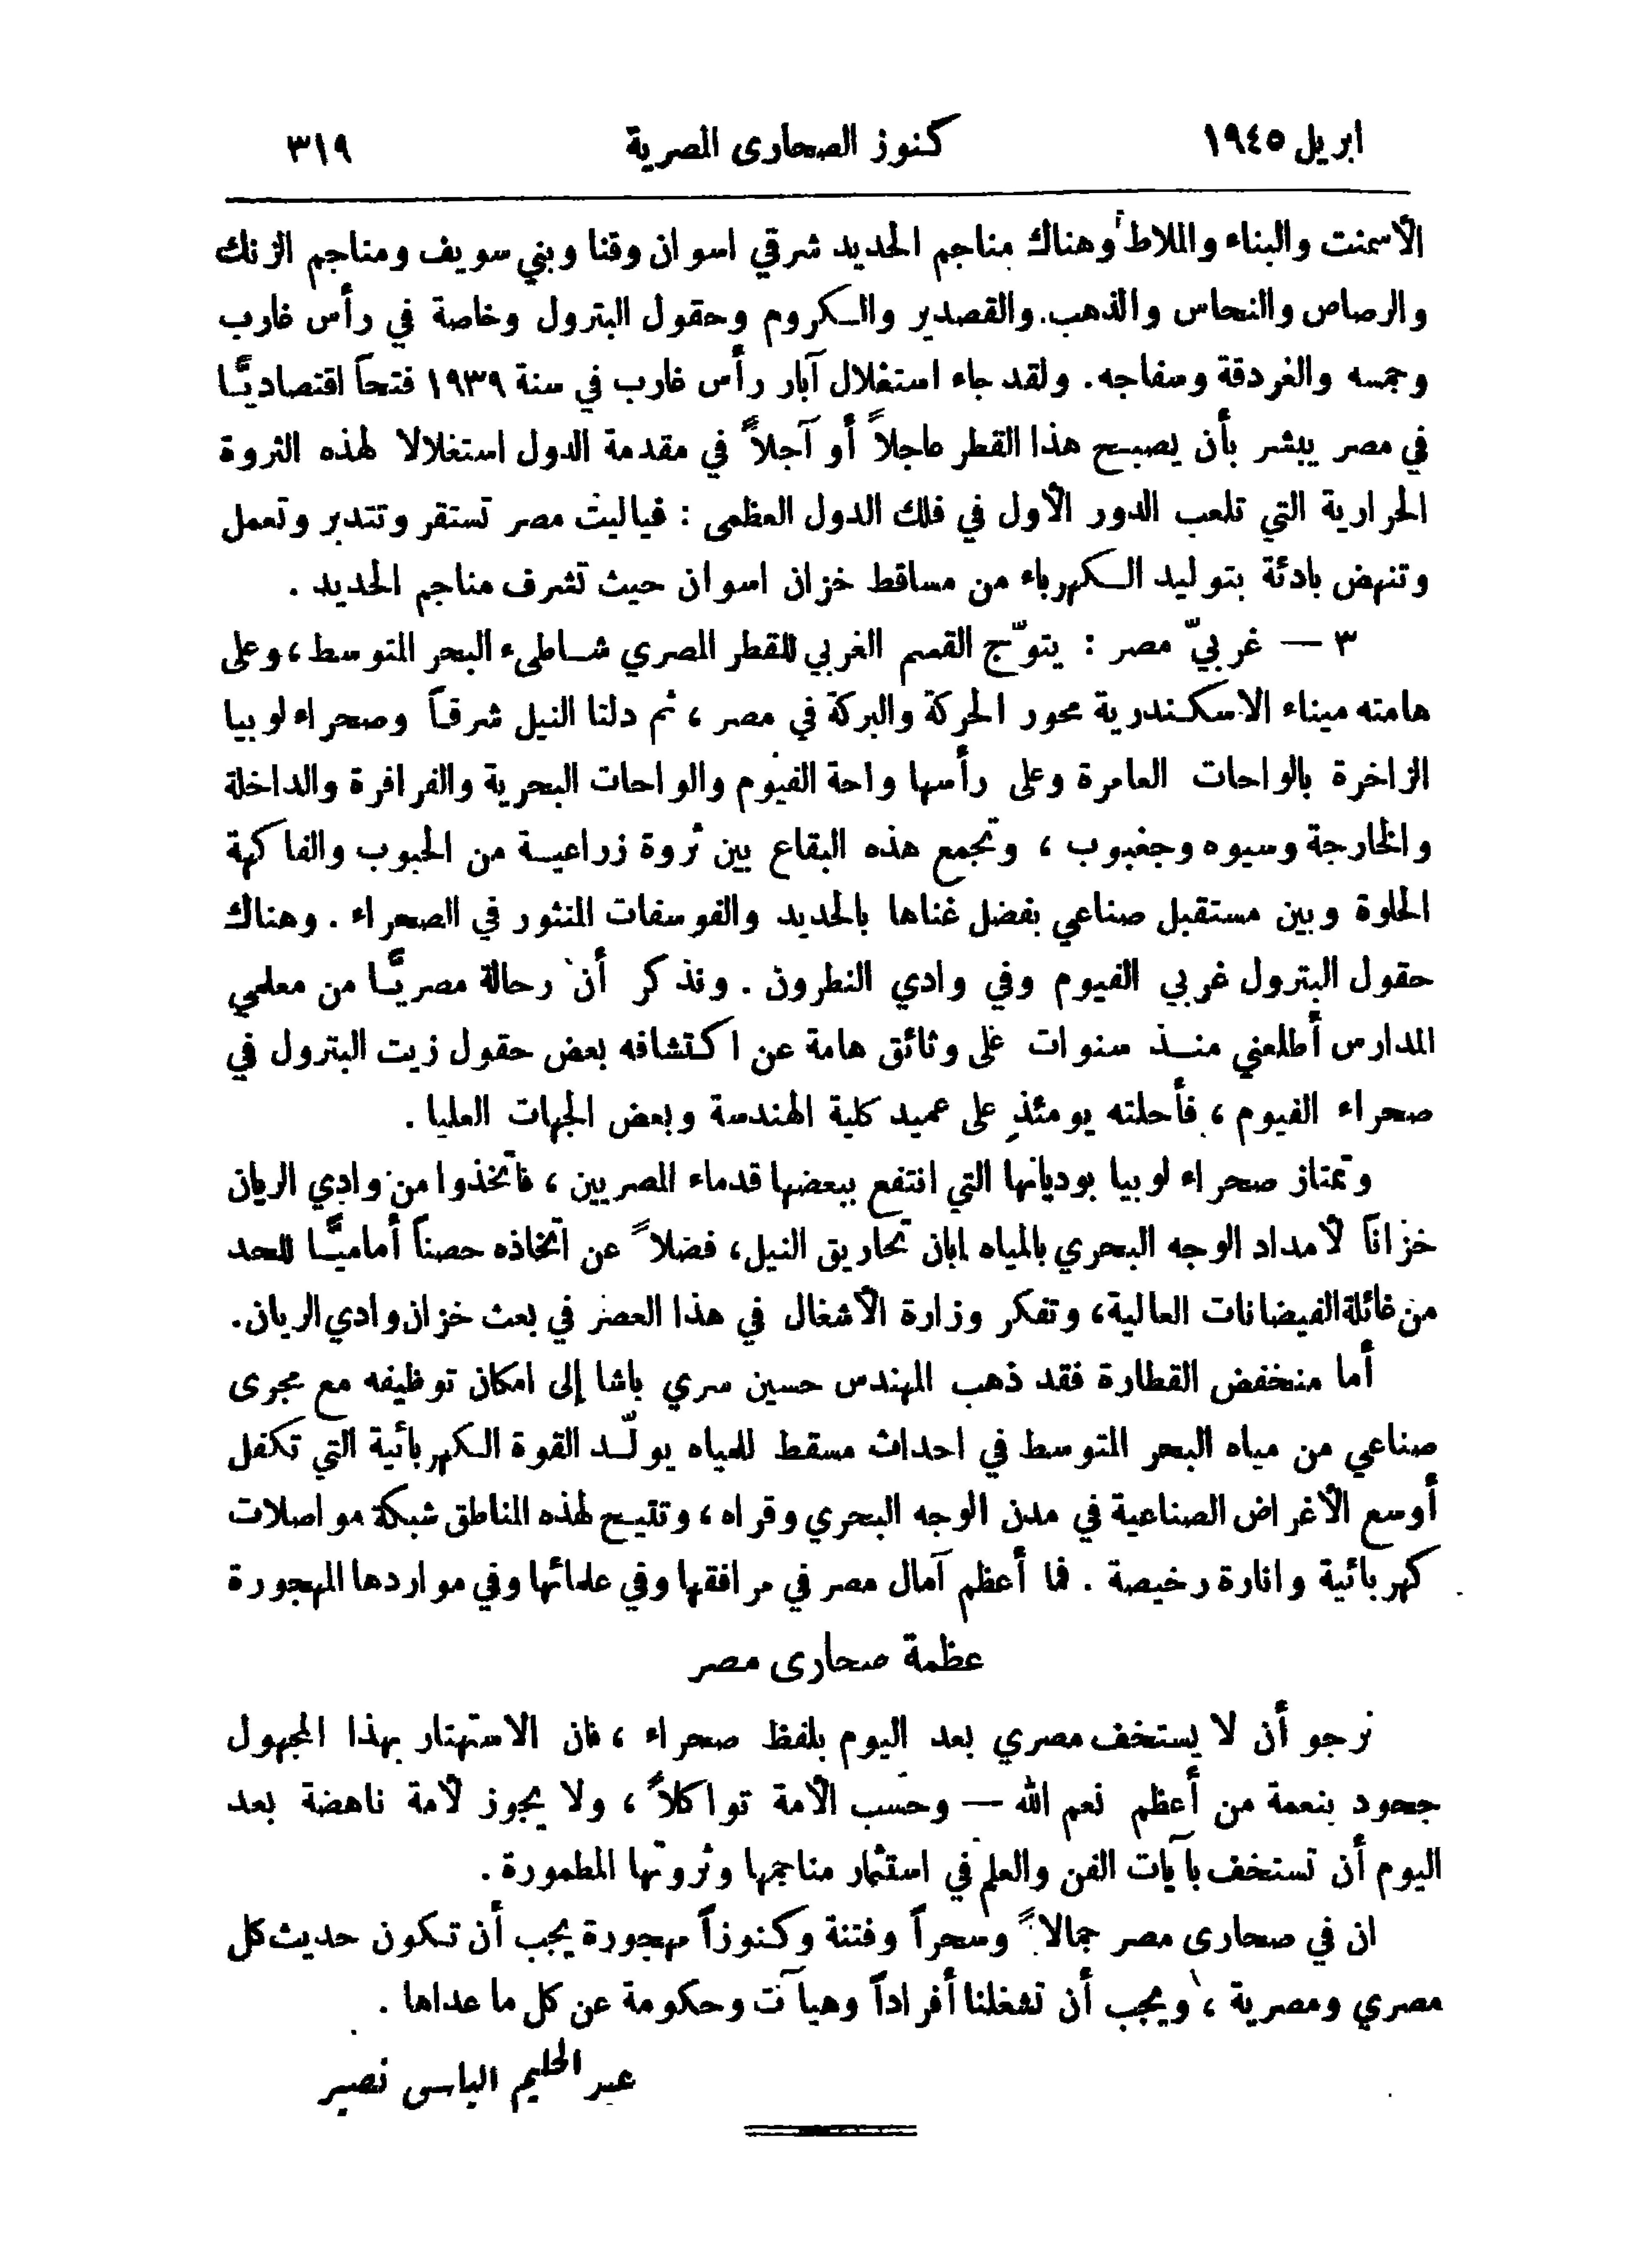 ابريل ١٩٤٥ كنوز الصحارى المصرية ٣١٩
الأسمنت والبناء والملاط وهناك مناجم الحديد شرقي اسوان وقنا وبني سويف ومناجم الزنك
والرصاص والنحاس والذهب والقصدير والكروم وحقول البترول وخاصة في رأس غارب
وجمسه والغردقة وسفاجه. ولقد جاء استغلال آبار رأس غارب في سنة ١٩٣٩ فتحاً اقتصاديًّا
في مصر يبشر بأن يصبح هذا القطر عاجلاً أو آجلاً في مقدمة الدول استغلالا لهذه الثروة
الحرارية التي تلعب الدور الأول في فلك الدول العظمى : فياليت مصر تستقر وتتدبر وتعمل
وتنهض بادئة بتوليد الكهرباء من مساقط خزان اسوان حيث تشرف مناجم الحديد .
٣ — غربيّ مصر : يتوّج القسم الغربي للقطر المصري شاطىء البحر المتوسط ، وعلى
هامته ميناء الاسكندرية محور الحركة والبركة في مصر ، ثم دلتا النيل شرقاً وصحراء لوبيا
الزاخرة بالواحات العامرة وعلى رأسها واحة الفيوم والواحات البحرية والفرافرة والداخلة
والخارجة وسيوه وجغبوب ، وتجمع هذه البقاع بين ثروة زراعية من الحبوب والفاكهة
الحلوة وبين مستقبل صناعي بفضل غناها بالحديد والفوسفات المنثور في الصحراء . وهناك
حقول البترول غربي الفيوم وفي وادي النطرون . ونذكر أن رحالة مصريًّا من معلمي
المدارس أطلعني منذ سنوات على وثائق هامة عن اكتشافه بعض حقول زيت البترول في
صحراء الفيوم ، فأحلته يومئذٍ على عميد كلية الهندسة وبعض الجهات العليا .
وتمتاز صحراء لوبيا بوديانها التي انتفع ببعضها قدماء المصريين ، فاتخذوا من وادي الريان
خزاناً لأمداد الوجه البحري بالمياه إبان تحاريق النيل، فضلاً عن اتخاذه حصناً أماميًّا للحد
من غائلة الفيضانات العالية، وتفكر وزارة الأشغال في هذا العصر في بعث خزان وادي الريان.
أما منخفض القطارة فقد ذهب المهندس حسين سري باشا إلى امكان توظيفه مع مجرى
صناعي من مياه البحر المتوسط في احداث مسقط للمياه يولّد القوة الكهربائية التي تكفل
أوسع الأغراض الصناعية في مدن الوجه البحري وقراه ، وتتيح لهذه المناطق شبكة مواصلات
كهربائية وانارة رخيصة . فما أعظم آمال مصر في مرافقها وفي علمائها وفي مواردها المهجورة
عظمة صحارى مصر
نرجو أن لا يستخف مصري بعد اليوم بلفظ صحراء ، فان الاستهتار بهذا المجهول
جحود بنعمة من أعظم نعم الله — وحسب الأمة تواكلاً ، ولا يجوز لأمة ناهضة بعد
اليوم أن تستخف بآيات الفن والعلم في استثمار مناجمها وثروتها المطمورة .
ان في صحارى مصر جمالاً وسحراً وفتنة وكنوزاً مهجورة يجب أن تكون حديث كل
مصري ومصرية ، ويجب أن تشغلنا أفراداً وهيآت وحكومة عن كل ما عداها .
عبد الحليم الياسى نصير